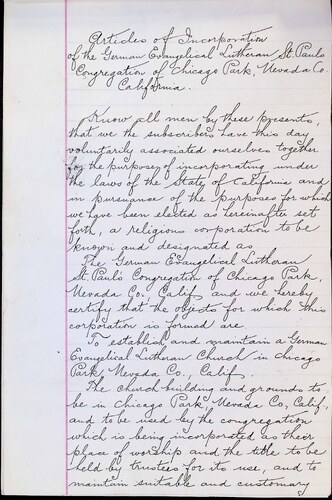 Articles of Incorporation
of the German Evangelical Lutheran St. Pauls
Congregation of Chicago Park, Nevada Co.
California.
Know all men by these presents,
that we the subscribers have this day
voluntarily associated ourselves together
for the purpose of incorporating under
the laws of the State of California and
in pursuance of the purposes for which
we have been elected as hereinafter set
forth, a religious corporation to be
known and designated as
The German Evangelical Lutheran
St. Paul's Congregation of Chicago Park,
Nevada Co., Calif. and we hereby
certify that the objects for which this
corporation is formed are
To establish and maintain a German
Evangelical Lutheran Church in Chicago
Park, Nevada Co., Calif.
The church building and grounds to
be in Chicago Park, Nevada Co, Calif,
and to be used by the congregation
which is being incorporated as their
place of worship and the title to be
held by trustees for its use, and to
maintain suitable and customary